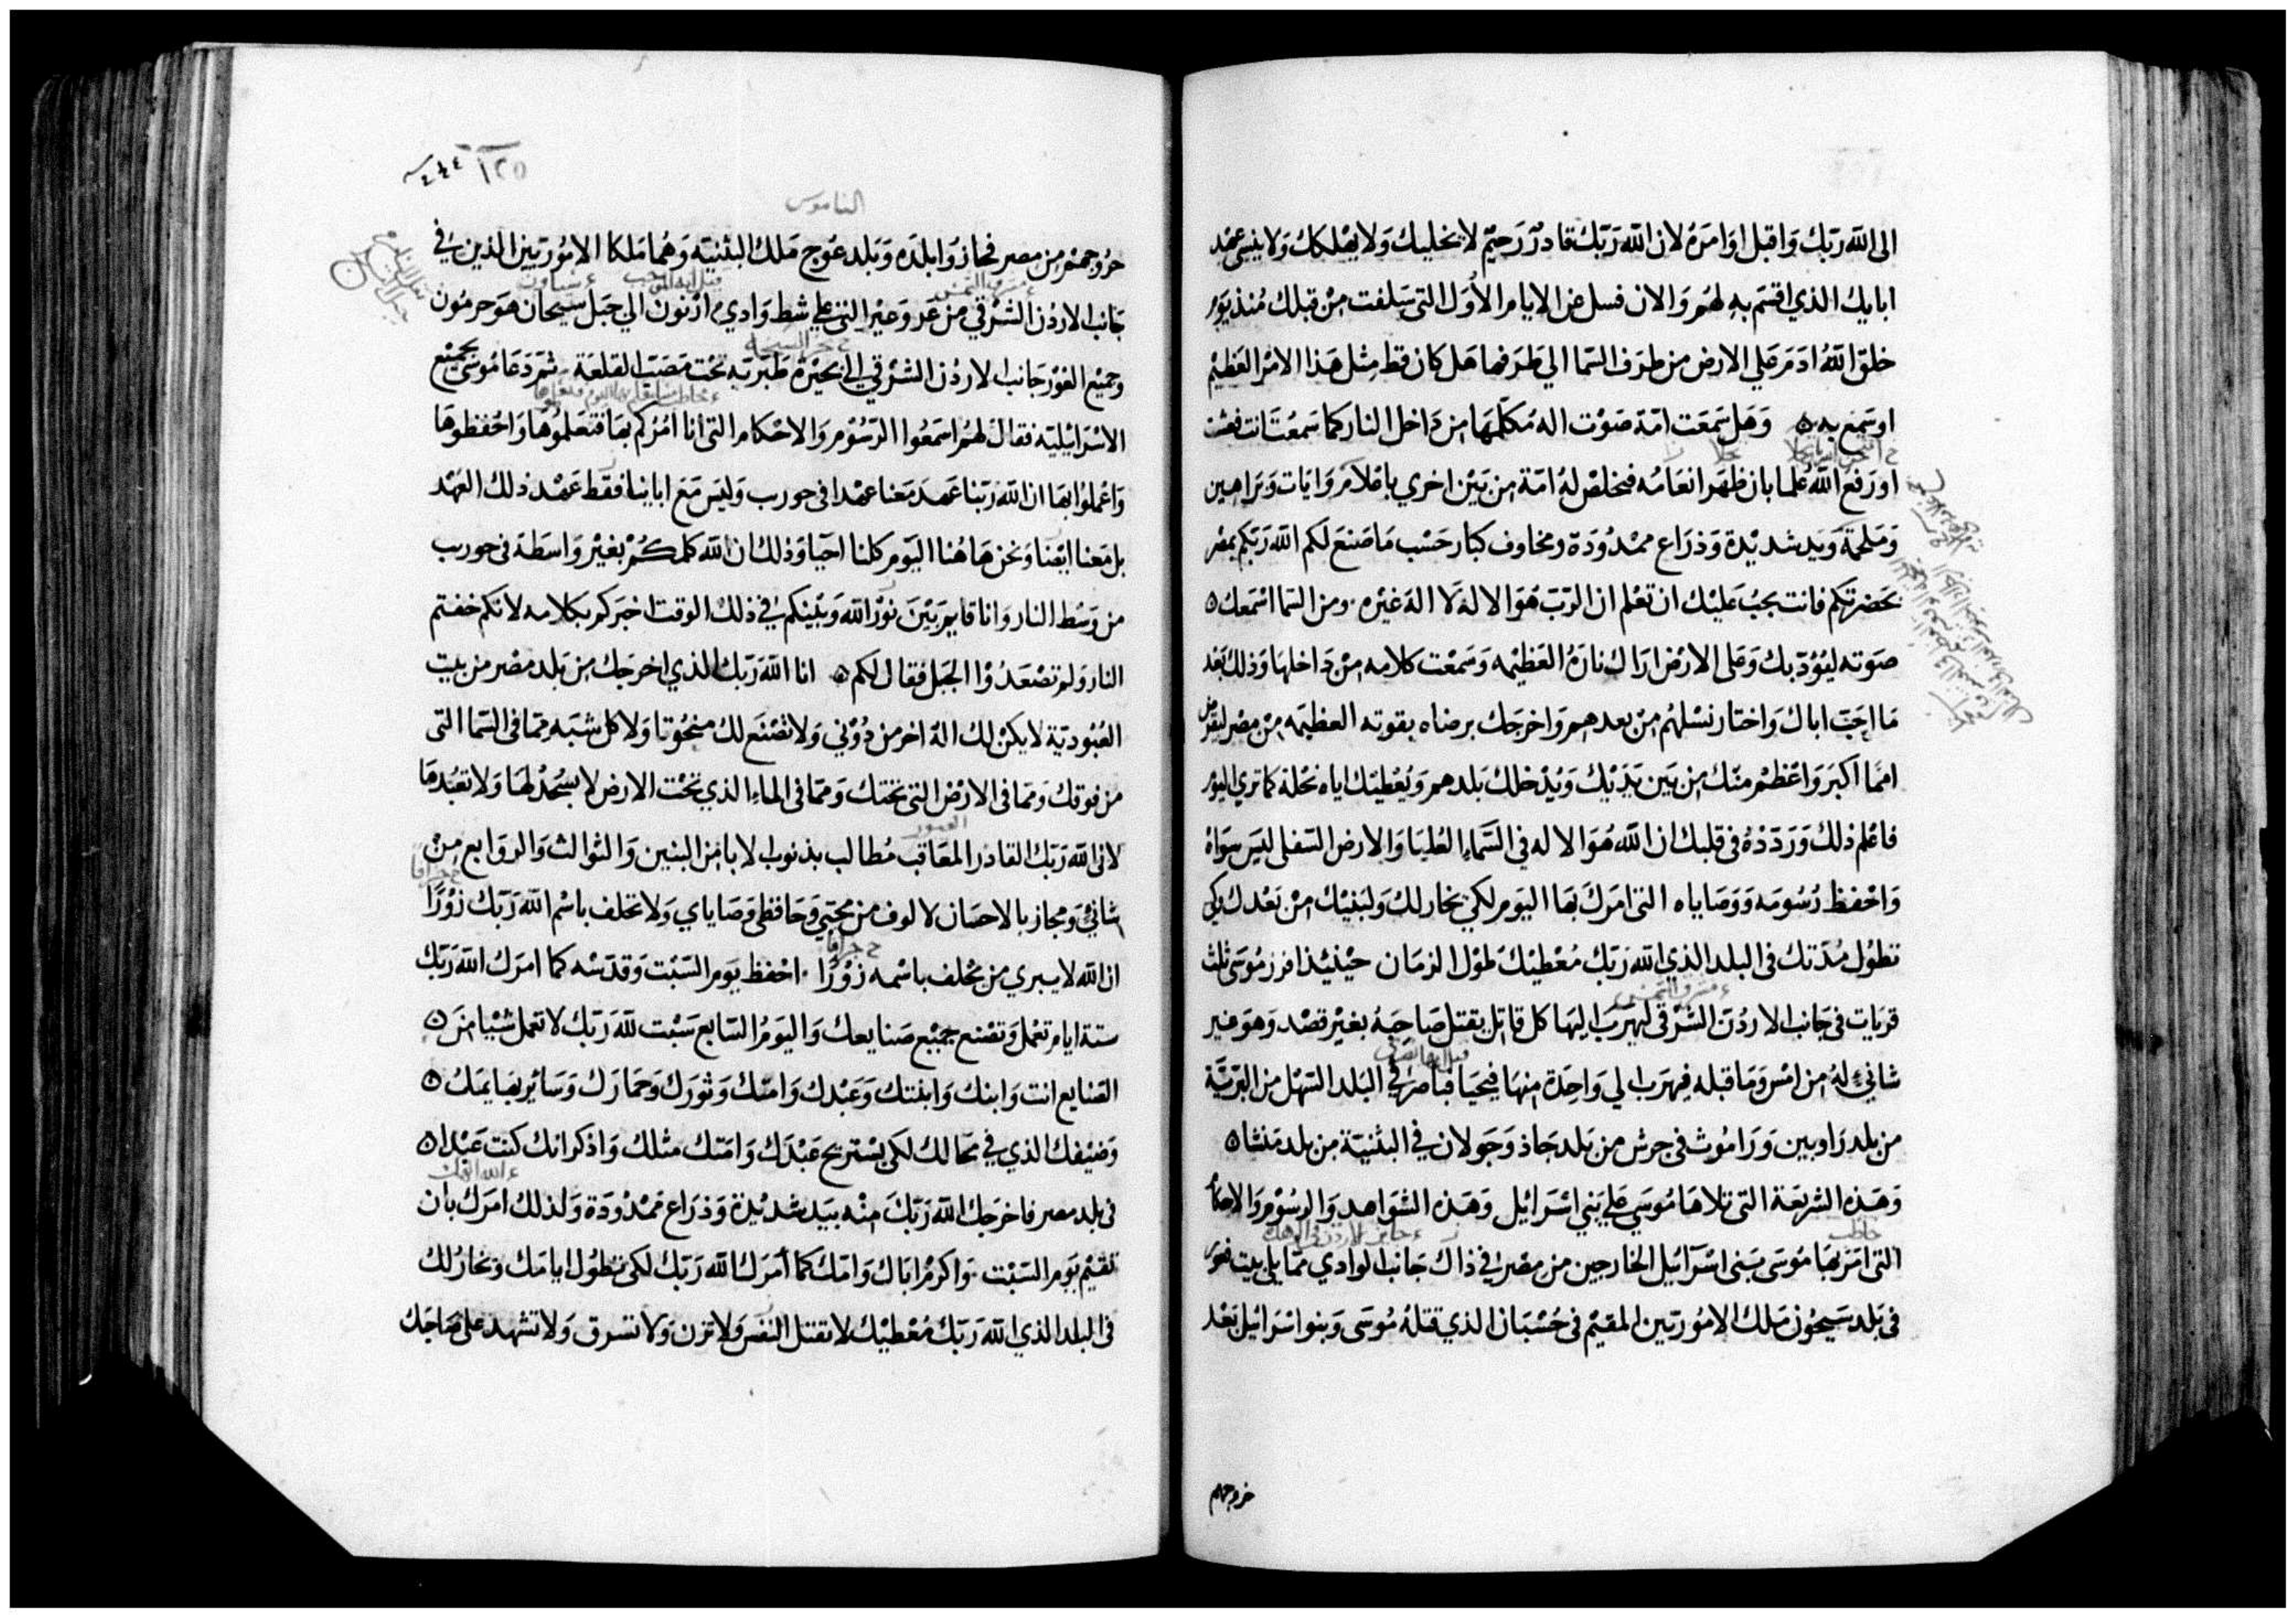 الى الله ربك واقبل اوامره لان الله ربك قادر رحيم لا يخليك ولا يهلكك ولا ينسى عهد
ابايك الذي اقسم به لهم والان فسل عن الايام الأول التى سلفت من قبلك منذ يوم
خلق الله ادم على الارض من طرف السما الي طرفها هل كان قط مثل هذا الامر العظيم
او سمع به وهل سمعت امة صوت اله مكلمها من داخل النار كما سمعت انت فعشت
او رفع الله علما بان ظهر انعامه فخلص له امة من بين اخري باعلام وايات وبراهين
وملحمة ويد شديدة وذراع ممدودة ومخاوف كبار حسب ما صنع لكم الله ربكم بمصر
بحضرتكم فانت يجب عليك ان تعلم ان الرب هو الاله لا اله غيره ومن السما اسمعك
صوته ليؤدبك وعلى الارض اراك ناره العظيمه وسمعت كلامه من داخلها وذلك بعد
ما احب اباك واختار نسلهم من بعدهم واخرجك برضاه بقوته العظيمه من مصر ليقرض
امما اكبر واعظم منك من بين يديك ويدخلك بلدهم ويعطيك اياه نحلة كما تري اليوم
فاعلم ذلك وردده في قلبك ان الله هو الاله في السماء العليا والارض السفلى ليس سواه
واحفظ رسومه ووصاياه التى امرك بها اليوم لكي يخار لك ولبنيك من بعدك ولكي
تطول مدتك في البلد الذي الله ربك معطيك لهول الزمان حينيذ افرز موسى ثلث
قريات في جانب الاردن الشرقي ليهرب اليها كل قاتل يقتل صاحبه بغير قصد وهو غير
شاني له من امس وما قبله فيهرب الي واحدة منها فيحيا فباصر في البلد السهل من البرية
من بلد راوبين وراموث في جرش من بلد جاذ وجولان في البثنية من بلد منشا
وهذه الشريعة التى تلاها موسي على بني اسرائيل وهذه الشواهد والرسوم والاحكام
التى امر بها موسى بنى اسرآئيل الخارجين من مصر في ذاك جانب الوادي مما يلي بيت فعور
في بلد سيحون ملك الاموريين المقيم في حسبان الذي قتله موسى وبنو اسرائيل بعد
خروجهم
١٢٥
الناموس
خروجهم من مصر فحازوا بلده وبلد عوج ملك البثنية وهما ملكا الاموريين الذين في
جانب الاردن الشرقي من عروعير التى على شط وادي ارنون الي جبل سيحان هو حرمون
وجميع الغور جانب الاردن الشرقي الي بحيرة طبرية تحت مصب القلعة ثم دعا موسى بجميع
الاسرائيلية فقال لهم اسمعوا الرسوم والاحكام التى انا امركم بها فتعلموها واحفظوها
واعملوا بها ان الله ربنا عهد معنا عهدا في حورب وليس مع اباينا فقط عهد ذلك العهد
بل معنا ايضا ونحن هاهنا اليوم كلنا احيا وذلك ان الله كلمكم بغير واسطة في حورب
من وسط النار وانا قايم بين نور الله وبينكم في ذلك الوقت اخبركم بكلامه لانكم خفتم
النار ولم تصعدوا الجبل فقال لكم انا الله ربك الذي اخرجك من بلد مصر من بيت
العبودية لا يكن لك اله اخر من دوني ولا تصنع لك منحوتا ولا كل شبه مما في السما التى
من فوقك ومما في الارض التى تحتك ومما في الماء الذي تحت الارض لا تسجد لها ولا تعبدها
لانى الله ربك القادر المعاقب مطالب بذنوب الابا من البنين والثوالث والروابع من
شاني ومجاز بالاحسان لالوف من محبي وحافظى وصاياي ولا تحلف باسم الله ربك زورا
ان الله لا يبري من يحلف باسمه زورا احفظ يوم السبت وقدسه كما امرك الله ربك
ستة ايام تعمل وتصنع جميع صنايعك واليوم السابع سبت لله ربك لا تعمل شيا من
الصنايع انت وابنك وابنتك وعبدك وامتك وثورك وحمارك وساير بهايمك
وضيفك الذي في محالك لكي يستريح عبدك وامتك مثلك واذكر انك كنت عبدا
في بلد مصر فاخرجك الله ربك منه بيد شديدة وذراع ممدودة ولذلك امرك بان
تقيم يوم السبت واكرم اباك وامك كما امرك الله ربك لكى تطول ايامك ويخار لك
في البلد الذي الله ربك معطيك لا تقتل النفس ولا تزن ولا تسرق ولا تشهد على صاحبك